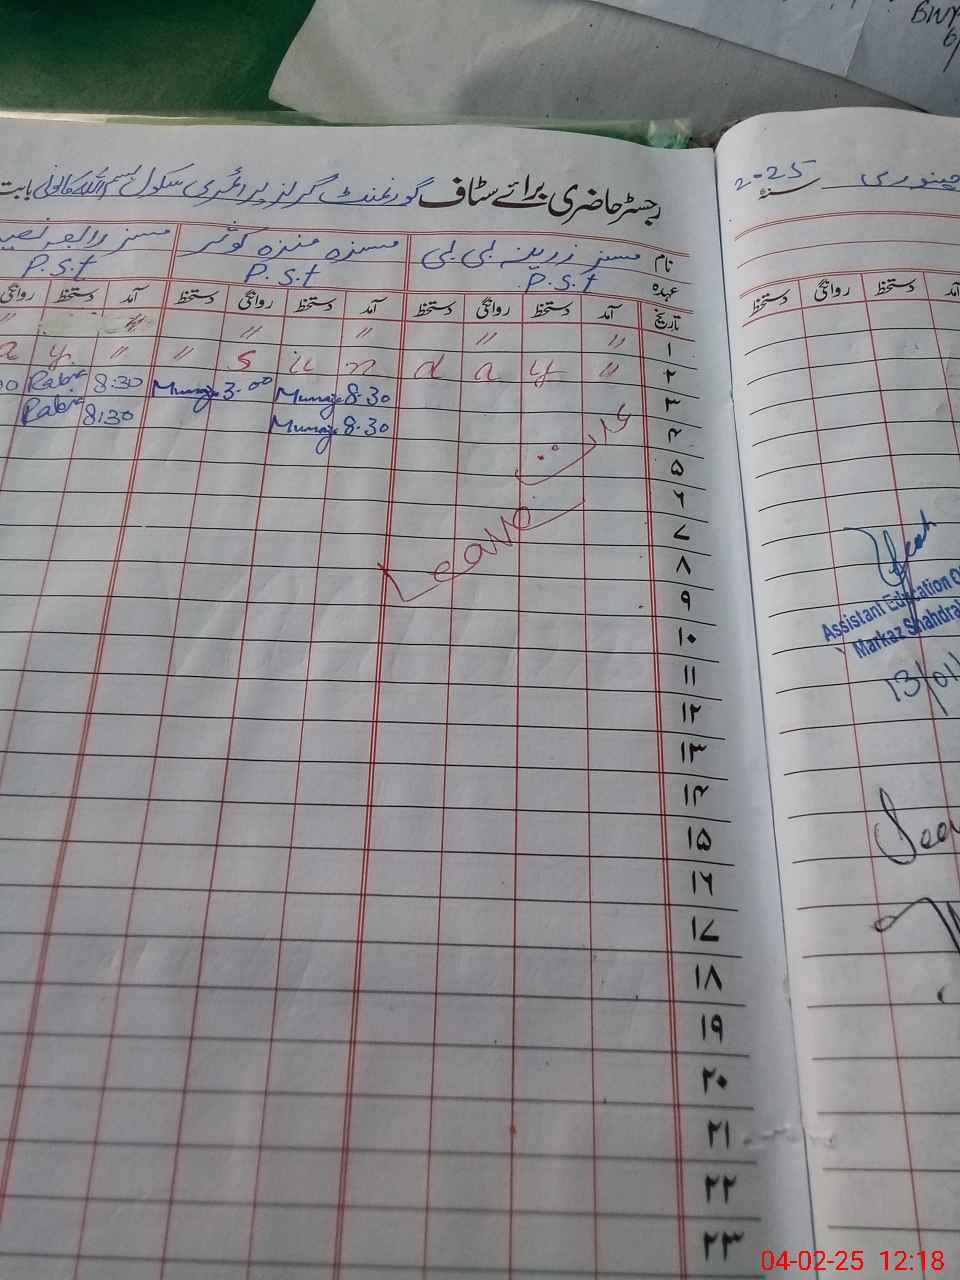 رجسٹر حاضری برائے سٹاف گورنمنٹ گرلز پرائمری سکول بسم اللہ کالونی بابت
نام مسز زرینہ بی بی مسزہ منزہ کوثر مسز رابعہ
عہدہ P.S.t P.S.t P.S.t
تاریخ آمد دستخط روانگی دستخط آمد دستخط روانگی دستخط آمد دستخط روانگی
۱ " " " " "
۲ " y a d n u S " " y a
۳ 8.30 3.00 8:30 Rabia 00
۴ 8.30 8:30 Rabia
۵
۶
۷
۸
۹
۱۰
۱۱
۱۲
۱۳
۱۴
۱۵
۱۶
۱۷
۱۸
۱۹
۲۰
۲۱
۲۲
۲۳
Leave
جنوری سنہ 2025
آمد دستخط روانگی دستخط
Assistant Education
Markaz Shahdra
13/01/
04-02-25 12:18